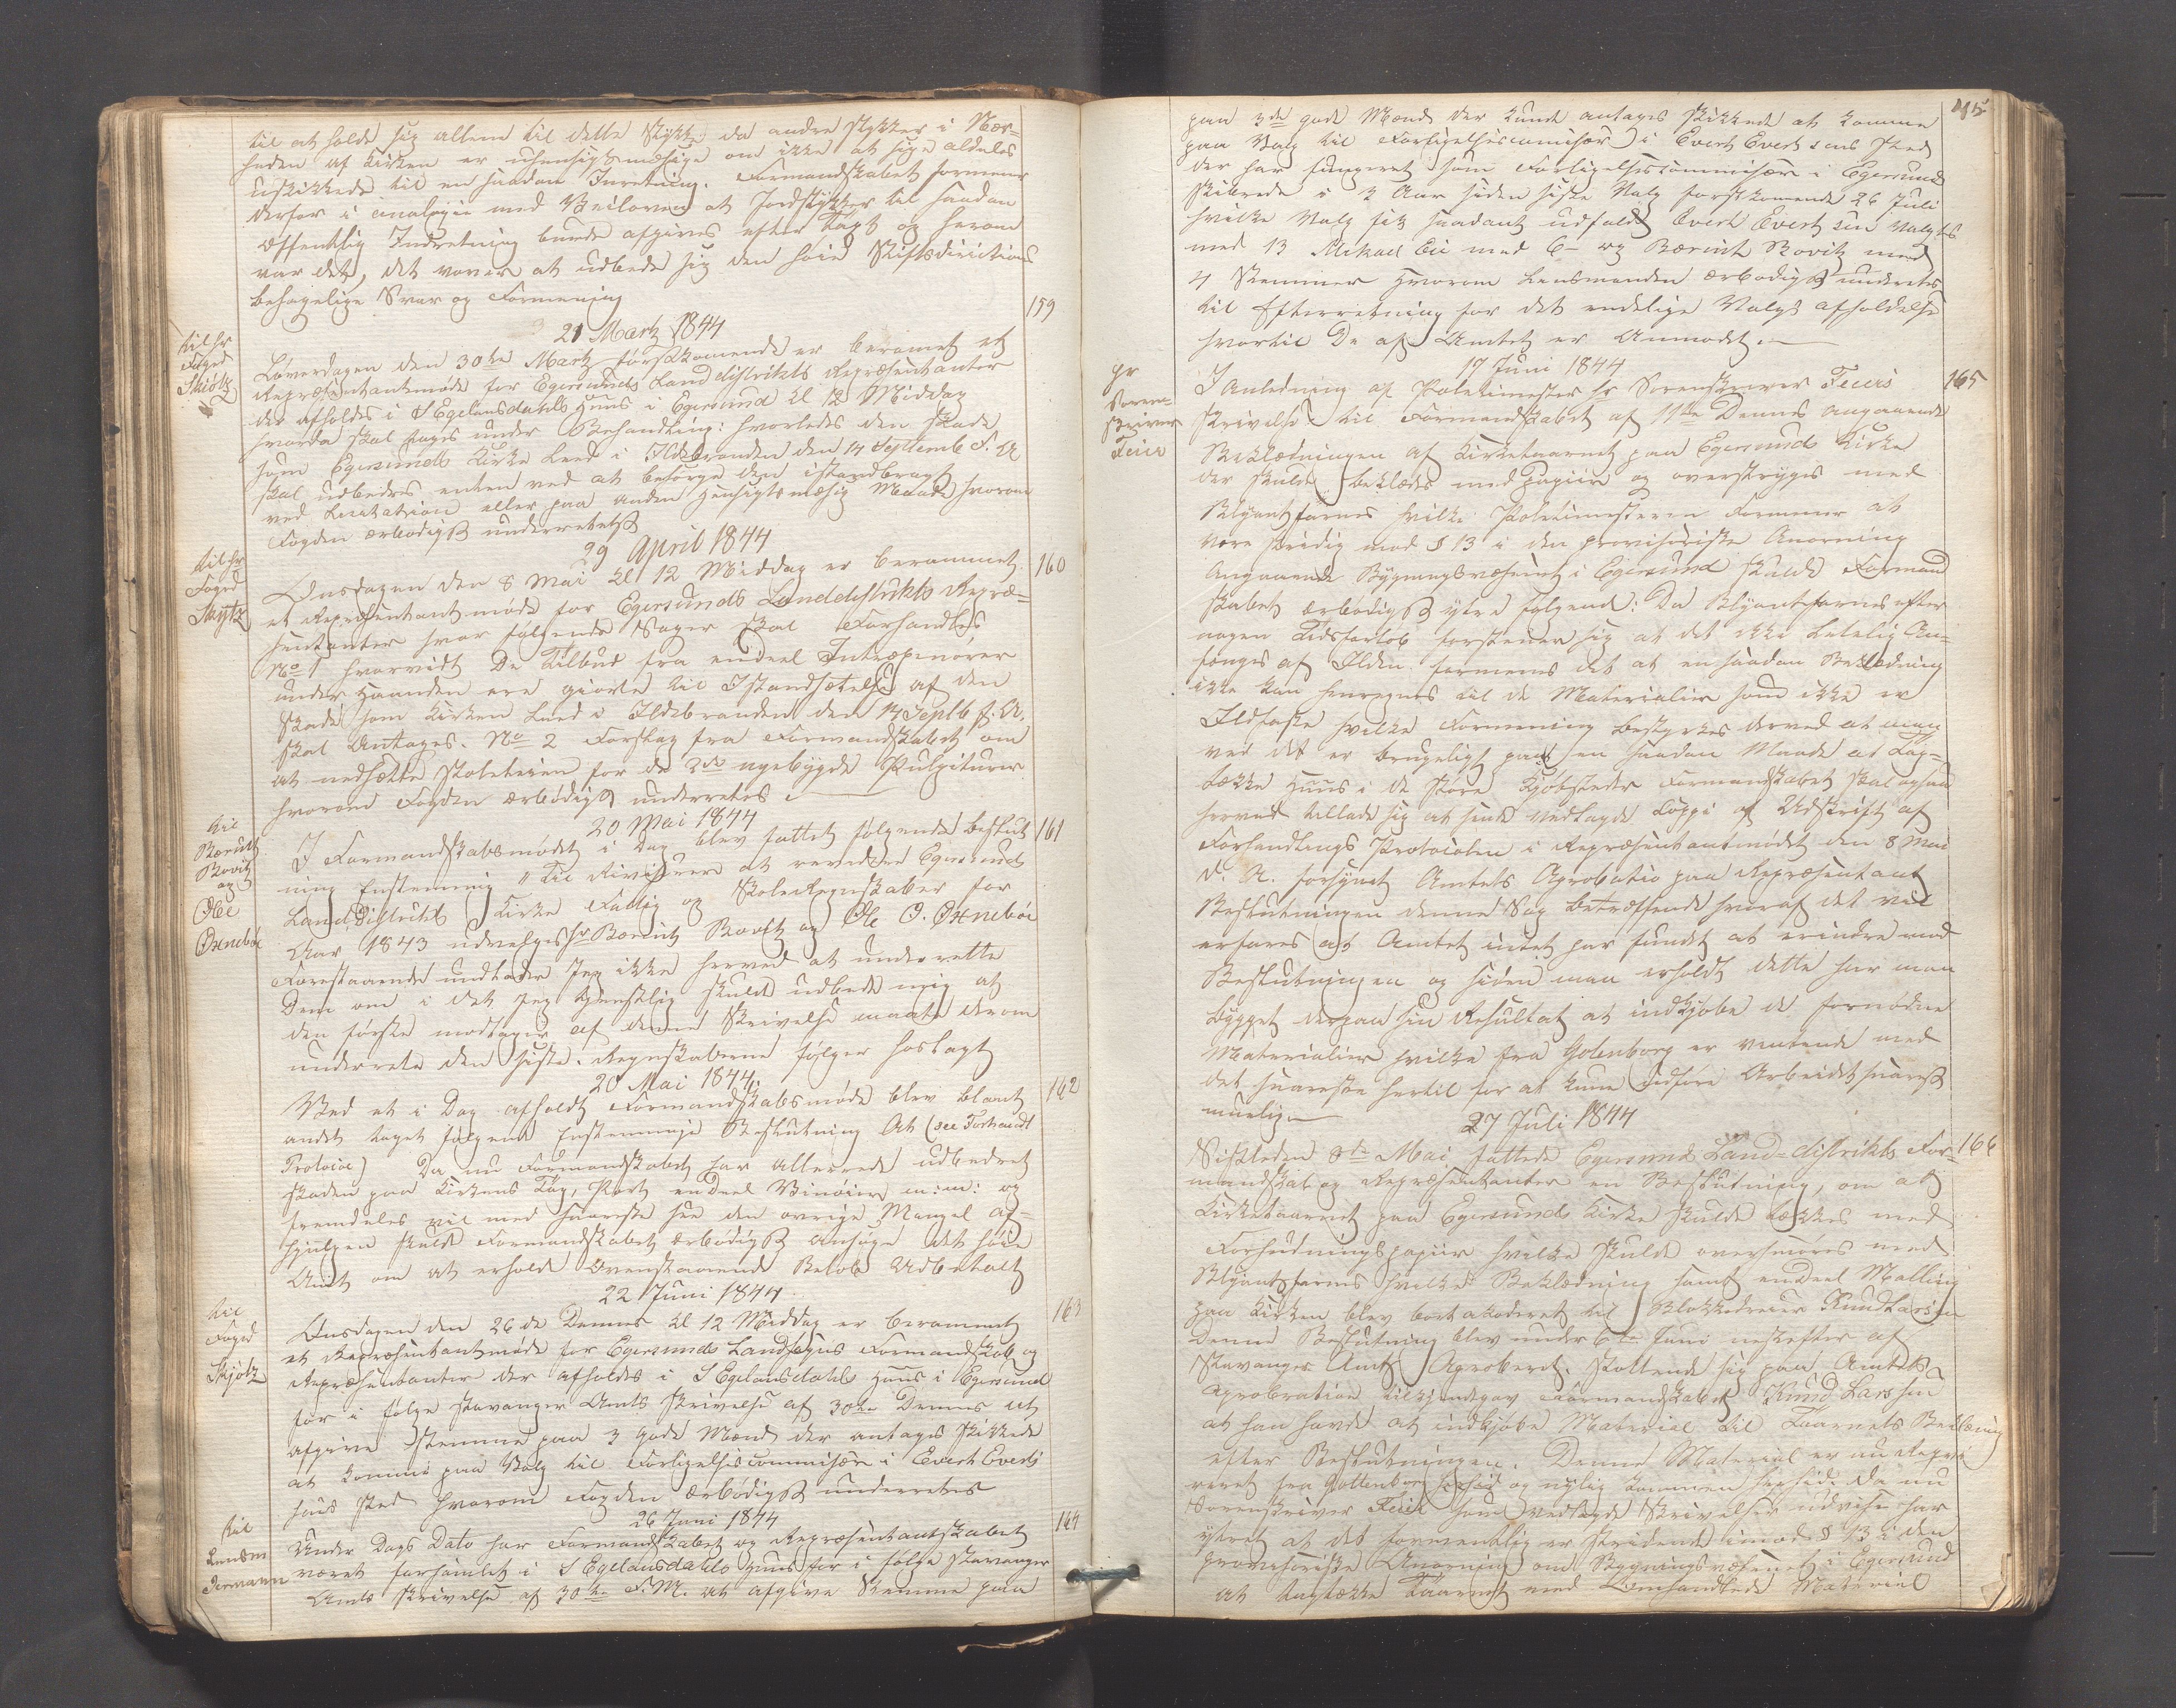 til at holde sig allene til dette Stykke da andre Stykker i Nær-
heden af Kirken er uhensigtsmæsige om ikke at sige aldeles
uskikkede til en saadan Inretning. Formandskabet formener
derfor i analogie med Veiloven at Jordstykker til saadan
offentlig Indretning burde afgives efter Taxt og herom
var det, det vover at udbede sig den høie Stiftsdirictions
behagelige Svar og Formening
159
21 Martz 1844
til Hr
Foged
Skiøtz
Løverdagen den 30te Martz førstkomende er beramet et
Repræsentantmøde for Egersunds Landdistrikts Repræsentanter
der afholdes i S Egelandsdahls Huus i Egersund Kl 12 Middag
hvorda skal tages under Behandling: hvorledes den Skade
som Egersunds Kirke leed i Ildebranden den 14 Septemb f. A
skal udbedres enten ved at besørge den istandbragt
ved Licitation eller paa anden hensigtsmæsig Maade hvorom
Fogden ærbødigst underrettes
29 April 1844
til Hr
Foged
Skiøtz
160
Onsdagen den 8 Mai Kl 12 Middag er berammet
et Repræsentantmøde for Egersunds Landdistrikts Repræ-
sentanter hvor følgende Sager skal Forhandles
No 1 hvorvidt De Tilbud fra endeel Intreprinører
under Haanden ere giorte til Istandsættelse af den
Skade som Kirken leed i Ildebranden den 14 Septb f. A.
skal Antages. No 2 Forslag fra Formandskabet om
at nedsætte Stoleleien for de 2de nyebygde Pulpiturer
hvorom Fogden ærbødigst underrettes
20 Mai 1844
til
Bærent
Rovitz
og
Ole
Oxnebøe
161
I Formandskabsmødet i Dag blev fattet følgende Beslut
ning Enstemmig "Til Revisurer at revidere Egersunds
Landdistrikts Kirke Fattig og Skole Regnskaber for
Aar 1843 udvelges Hr Bærent Rovitz og Ole O. Oxnebøe
Forestaaende undlader Jeg ikke herved at underrette
Dem om i det Jeg tjenstlig skulde udbede mig at
den første modtager af denne Skrivelse maate derom
underrete den sidste. Regnskaberne følger hoslagt
20 Mai 1844.
162
Ved et i Dag afholdt Formandskabsmøde blev blant
andet taget følgende Enstemmige Beslutning At (see Forhandl
Protocol) Da nu Formandskabet har allerede udbedret
Skaden paa Kirkens Tag, Port, endeel Vinduer m: m: og
fremdeles vil med snareste see den øvrige Mangel af-
hjulpen skulde Formandskabet ærbødigst ansøge det høie
Amt om at erholde Ovenstaaende Beløb Udbetalt
22 Juni 1844
til
Foged
Skjøtz
163
Onsdagen den 26de Dennes Kl 12 Middag er berammet
et Repræsentantmøde for Egersunds Landsogns Formandskab og
Repræsentanter der afholdes i S Egelandsdahls Huus i Egersund
for i følge Stavanger Amts Skrivelse af 30te Dennes at
afgive Stemme paa 3 gode Mænd der antages skikkede
at komme paa Valg til Forligelsescommisær i Evert Everts
søns Sted hvorom Fogden ærbødigst underrettes
26 Juni 1844
til
Lensm
164
Under Dags Dato har Formandskabet og Repræsentantskabet
været forsamlet i S Egelandsdahls Huus for i følge Stavanger
Amts Skrivelse af 30te f. M. at afgive Stemme paa
95
paa 3de gode Mænd der kunde antages skikkede at komme
paa Valg til Forligelsescomisær i Evert Evertsens Sted
der har fungeret som Forligelsescommisær i Egersund
Skibrede i 3 Aar siden siste Valg førstkomende 26 Juli
hvilke Valg fik saadant udfald Evert Evertsen Valgtes
med 13 Mikael Eie med 6– og Bærent Rovitz med
4 Stemmer Hvorom Lensmanden ærbødigst underetes
til Efterretning for det endelige Valgs afholdelse
hvortil De af Amtet er Anmodet.
17 Juni 1844
Hr
Soren-
skriver
Feier
165
I Anledning af Politimester Hr Sorenskriver Feiers
Skrivelse til Formandskabet af 11te Dennes angaaende
Beklædningen af Kirketaarnet paa Egersunds Kirke
der skulde beklædes med Papiir og overstryges med
Blyantfernes hvilke Politimesteren Formener at
være stridig mod § 13 i den provisoriske Anorning
Angaaende Bygningsvæsenet i Egersund skulde Formand
skabet ærbødigst ytre følgende: Da Blyantfernes efter
nogen Tidsforløb forstener sig at det ikke letelig An-
fenges af Ilden formenes det at en saadan Beklædning
ikke kan henregnes til de Materialier som ikke er
Ildfaste hvilke Formening bestyrkes derved at man
ved det er brugeligt paa en saadan Maade at Tag-
lække Huus i de Støre Kjøbsteder Formandskabet skal ogsaa
herved tillade sig at sende vedlagde Coppi af Udskrift af
Forhandlings Protocolen i Repræsentantmødet den 8 Mai
d. A. forsynet Amtets Aprobatio paa Repræsentant
Beslutningen denne Sag betræffende hvoraf det vil
erfares at Amtet intet har fundet at erindre mod
Beslutningen og siden man erholdt dette har man
bygget derpaa sin Resultat at indkjøbe de fornødne
Materialier hvilke fra Gotenborg er ventende med
det snareste hertil for at kune udføre Arbeidet snarest
muelig
27 Juli 1844
166
Sidstleden 8de Mai fattede Egersunds Land-distrikts For-
mandskab og Repræsentanter en Beslutning, om at
Kirketaarnet paa Egersunds Kirke skulde lækkes med
Forhudningspapiir hvilke skulde oversmøres med
Blyantsfernes hvilket Beklædning samt endeel Malling
paa Kirken blev bortakorderet til Blokkedreier Knud Larsen
Denne Beslutning blev under 6te Juni nestefter af
Stavanger Amt Aproberet. Støttende sig paa Amtets
Aprobration tilkjendegav Formandskabet Knud Larssen
at han havde at indkjøbe Material til Taarnets Beklæning
efter Beslutningen. Denne Material er nu Repvi
reret fra Gottenborg og nylig kommen herhid Da nu
Sorenskriver Feier som vedlagde Skrivelser udvise har
ytret at det formentlig er Stridende imod § 13 i den
provisoriske Anorning om Bygningsvæsenet i Egersund
at taglække Taarnet med Omhandlede Material